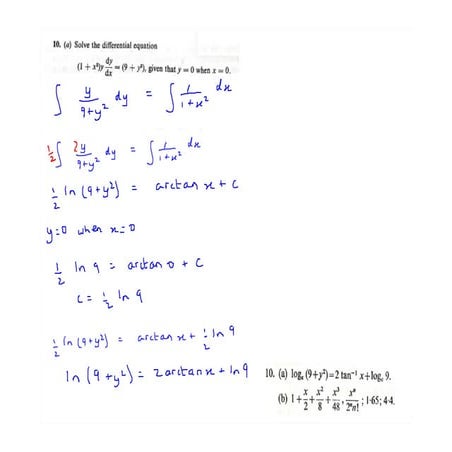 10. (a) Solve the differential equation
(1 + x²)y dy/dx = (9 + y²), given that y = 0 when x = 0.
∫ y/(9+y²) dy = ∫ 1/(1+x²) dx
½ ∫ 2y/(9+y²) dy = ∫ 1/(1+x²) dx
½ ln (9+y²) = arctan x + c
y=0 when x=0
½ ln 9 = arctan 0 + c
c = ½ ln 9
½ ln (9+y²) = arctan x + ½ ln 9
ln (9+y²) = 2arctan x + ln 9
10. (a) logₑ (9+y²)=2 tan⁻¹ x+logₑ 9.
(b) 1+x/2+x²/8+x³/48, xⁿ/2ⁿn!; 1·65; 4·4.